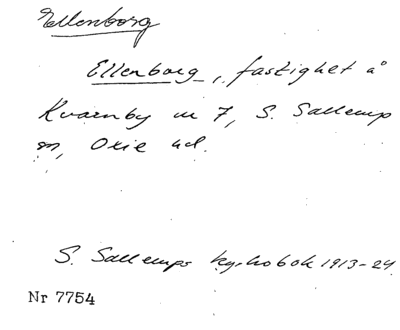 Ellenborg
Ellenborg, fastighet å
Kvarnby nr 7, S. Sallerup
sn, Oxie hd.
S. Sallerups kyrkobok 1913-24
Nr 7754